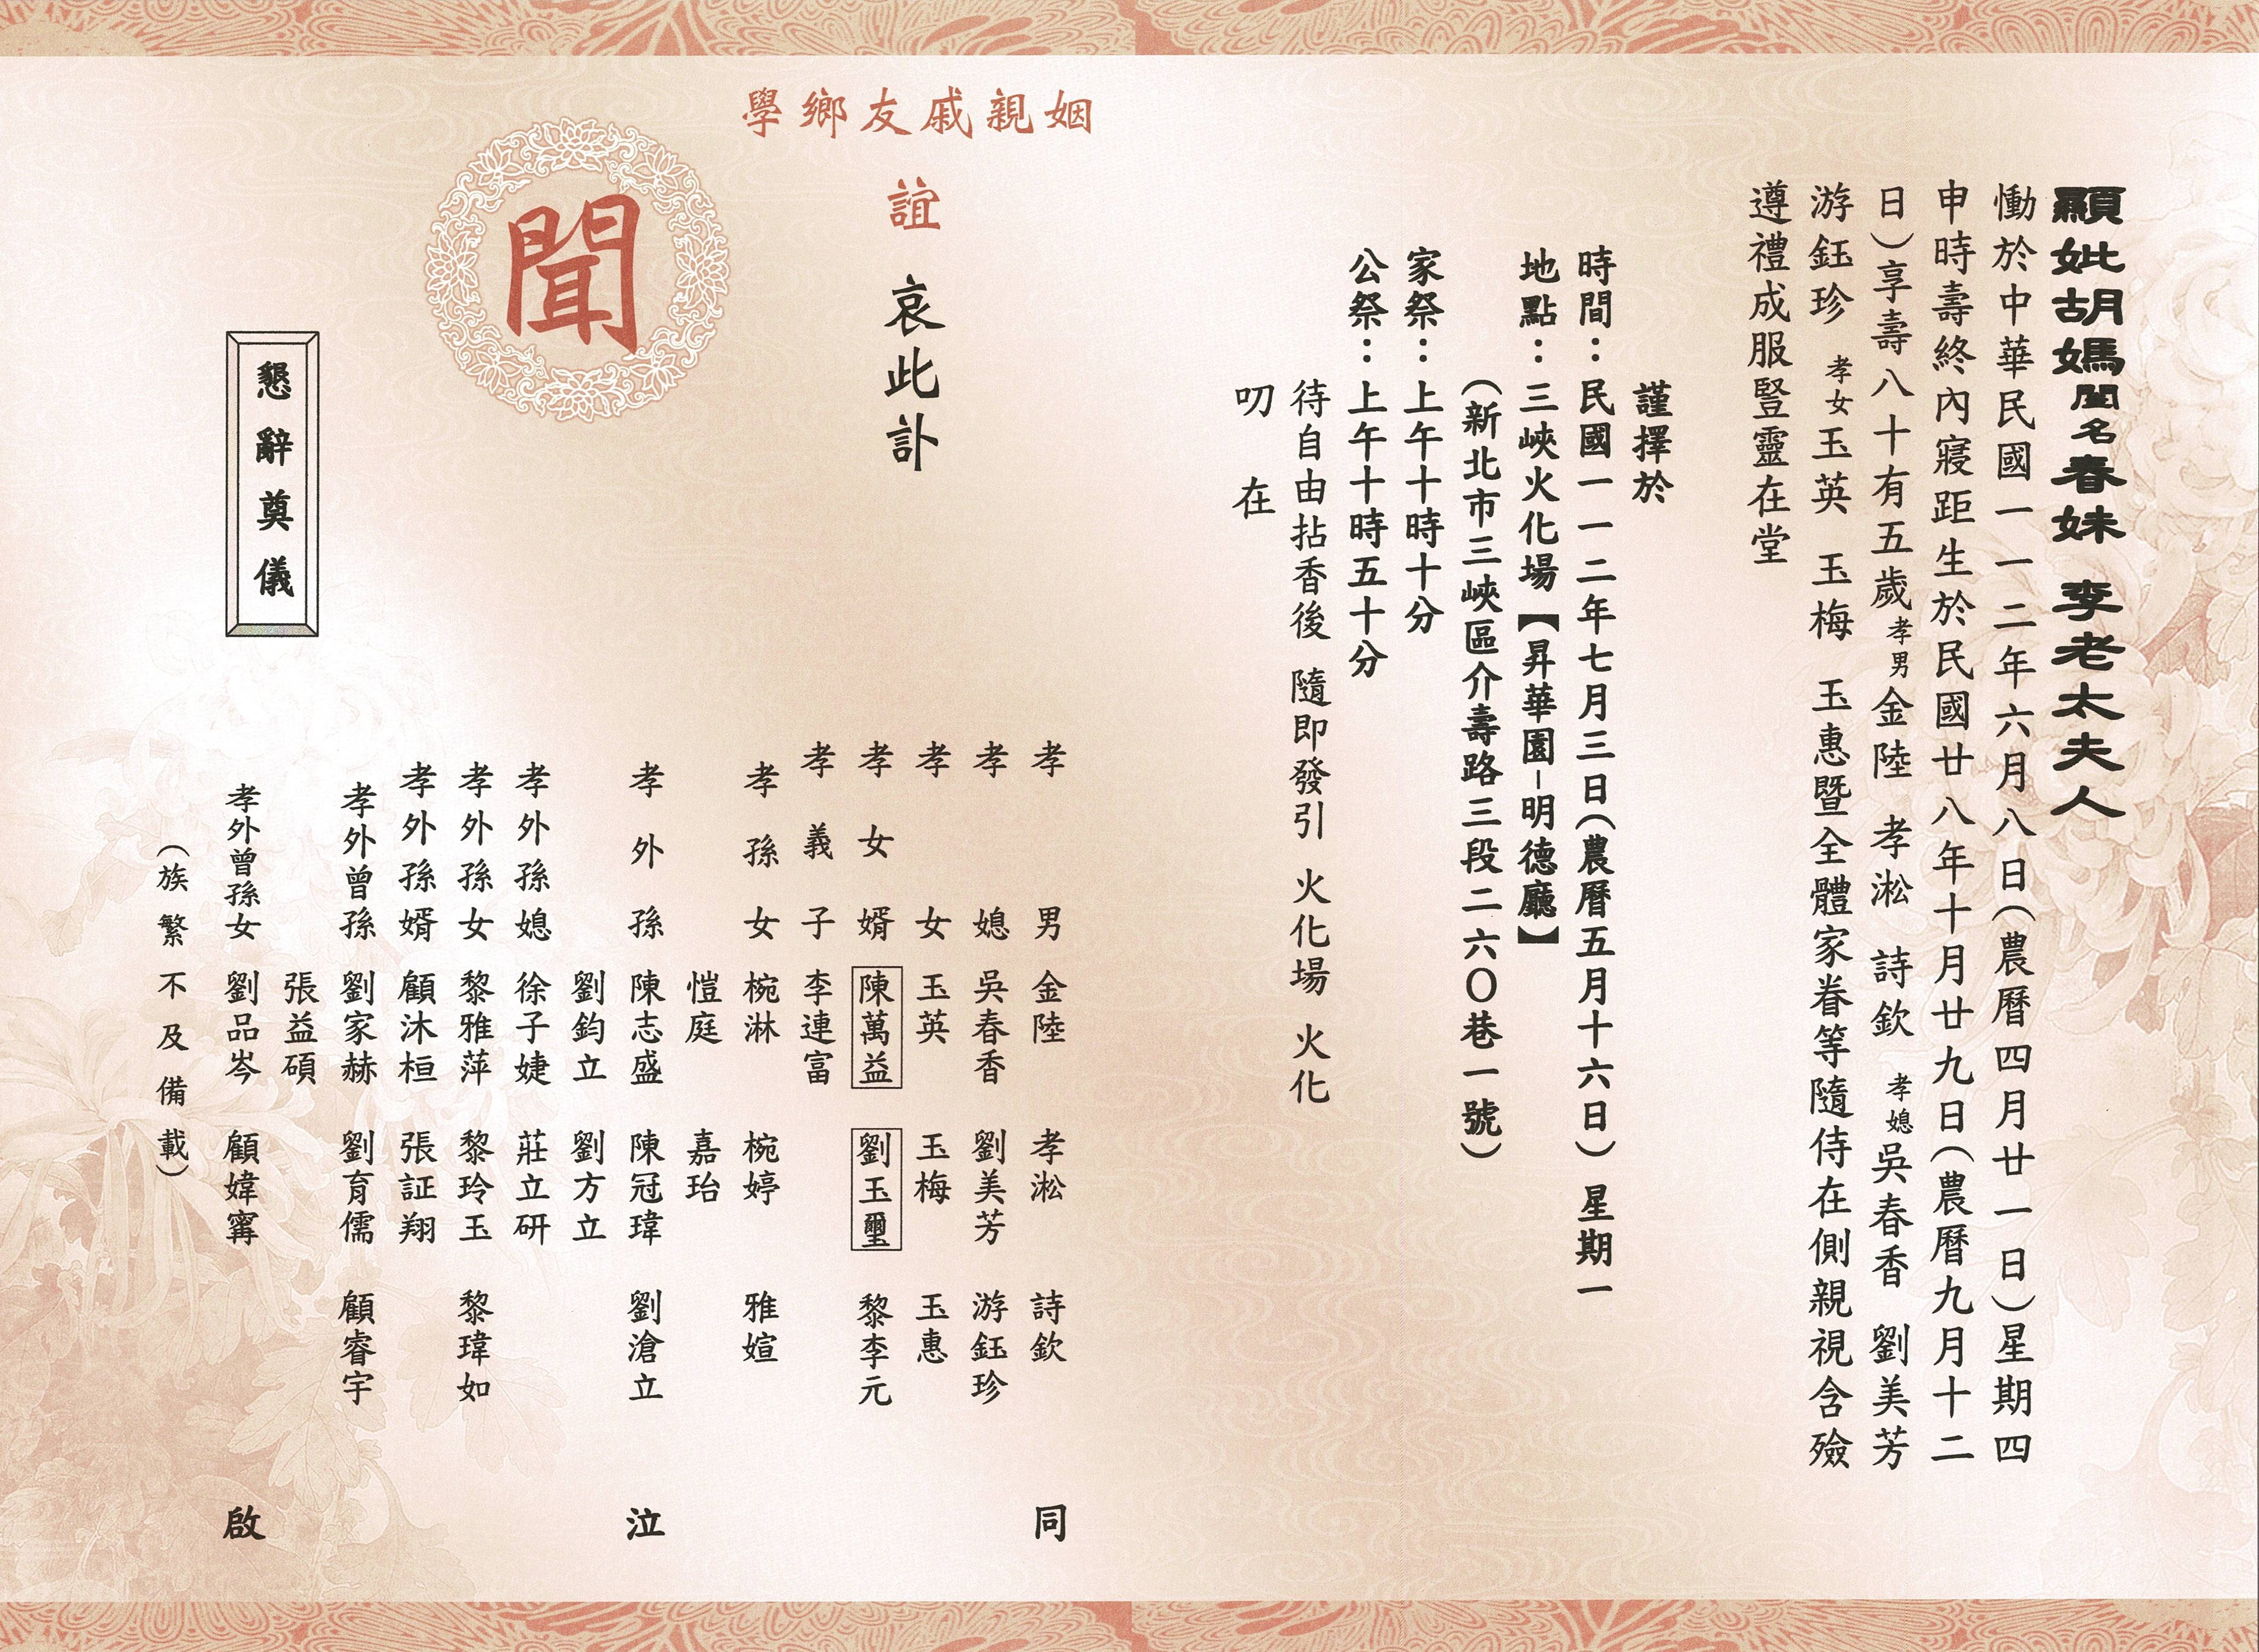 顯妣胡媽閨名春妹　李老太夫人
慟於中華民國一一二年六月八日（農曆四月廿一日）星期四
申時壽終內寢距生於民國廿八年十月廿九日（農曆九月十二
日）享壽八十有五歲孝男金陸　孝淞　詩欽　孝媳吳春香　劉美芳
游鈺珍　孝女玉英　玉梅　玉惠暨全體家眷等隨侍在側親視含殮
遵禮成服豎靈在堂
謹擇於
時間：民國一一二年七月三日（農曆五月十六日）星期一
地點：三峽火化場【昇華園-明德廳】
（新北市三峽區介壽路三段二六〇巷一號）
家祭：上午十時十分
公祭：上午十時五十分
待自由拈香後　隨即發引　火化場　火化
叨　在
姻親戚友鄉學
誼　哀此訃
聞
孝男　金陸　孝淞　詩欽　同
孝媳　吳春香　劉美芳　游鈺珍
孝女　玉英　玉梅　玉惠
孝女婿　陳萬益　劉玉璽　黎李元
孝義子　李連富
孝孫女　椀淋　椀婷　雅媗
愷庭　嘉珆
孝外孫　陳志盛　陳冠瑋　劉滄立　泣
劉鈞立　劉方立
孝外孫媳　徐子婕　莊立研
孝外孫女　黎雅萍　黎玲玉　黎瑋如
孝外孫婿　顧沐桓　張証翔
孝外曾孫　劉家赫　劉育儒　顧睿宇
張益碩
孝外曾孫女　劉品岑　顧婞寗　啟
（族繁不及備載）
懇辭奠儀